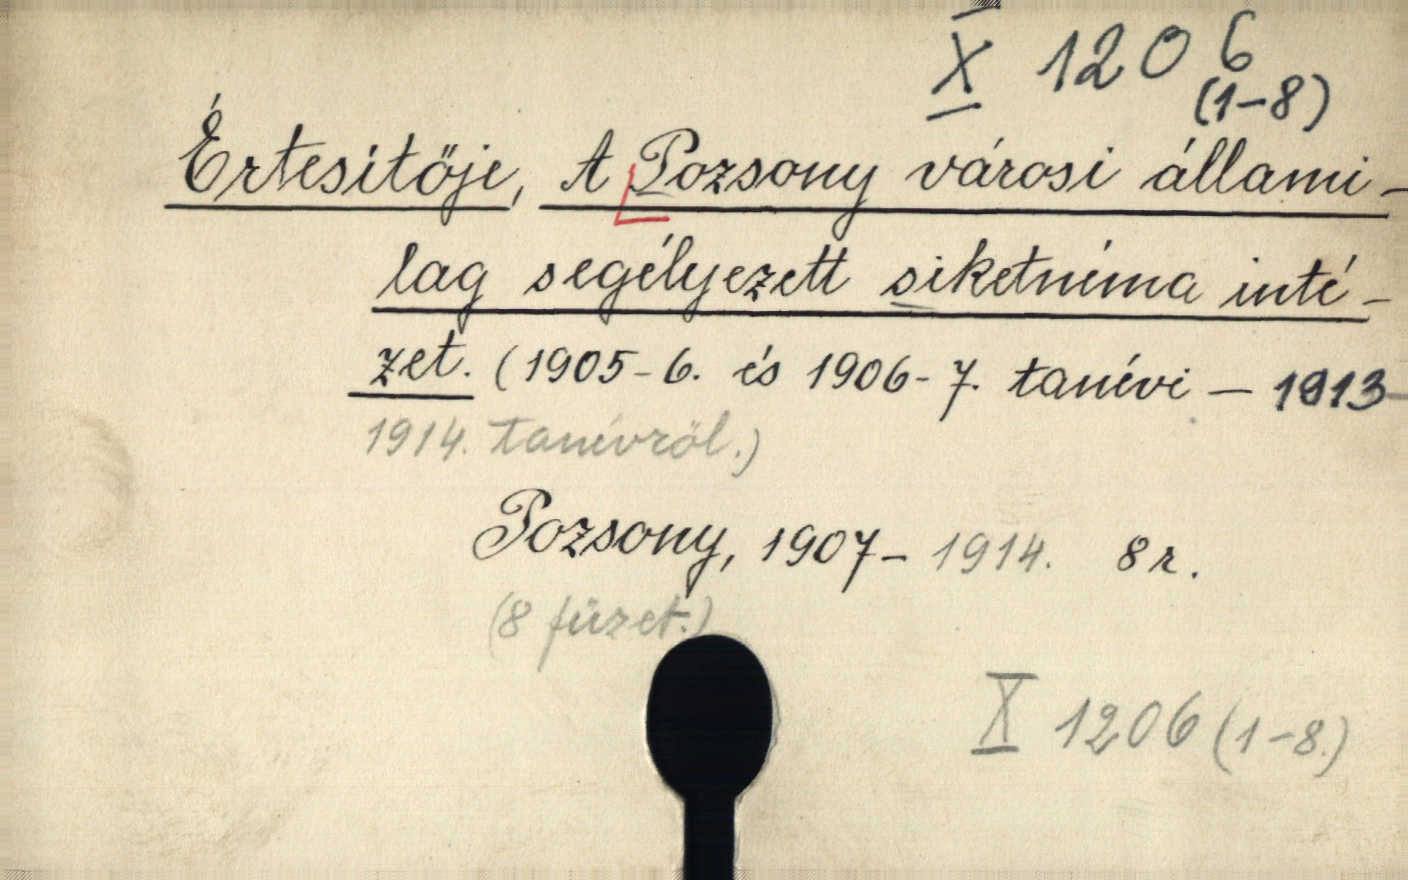 X 1206
(1-8)
Értesítője, A Pozsony városi állami-
lag segélyezett siketnéma inté-
zet. (1905-6. és 1906-7. tanévi - 1913-
1914. tanévről.)
Pozsony, 1907- 1914. 8 r.
(8 füzet.)
X 1206 (1-8.)